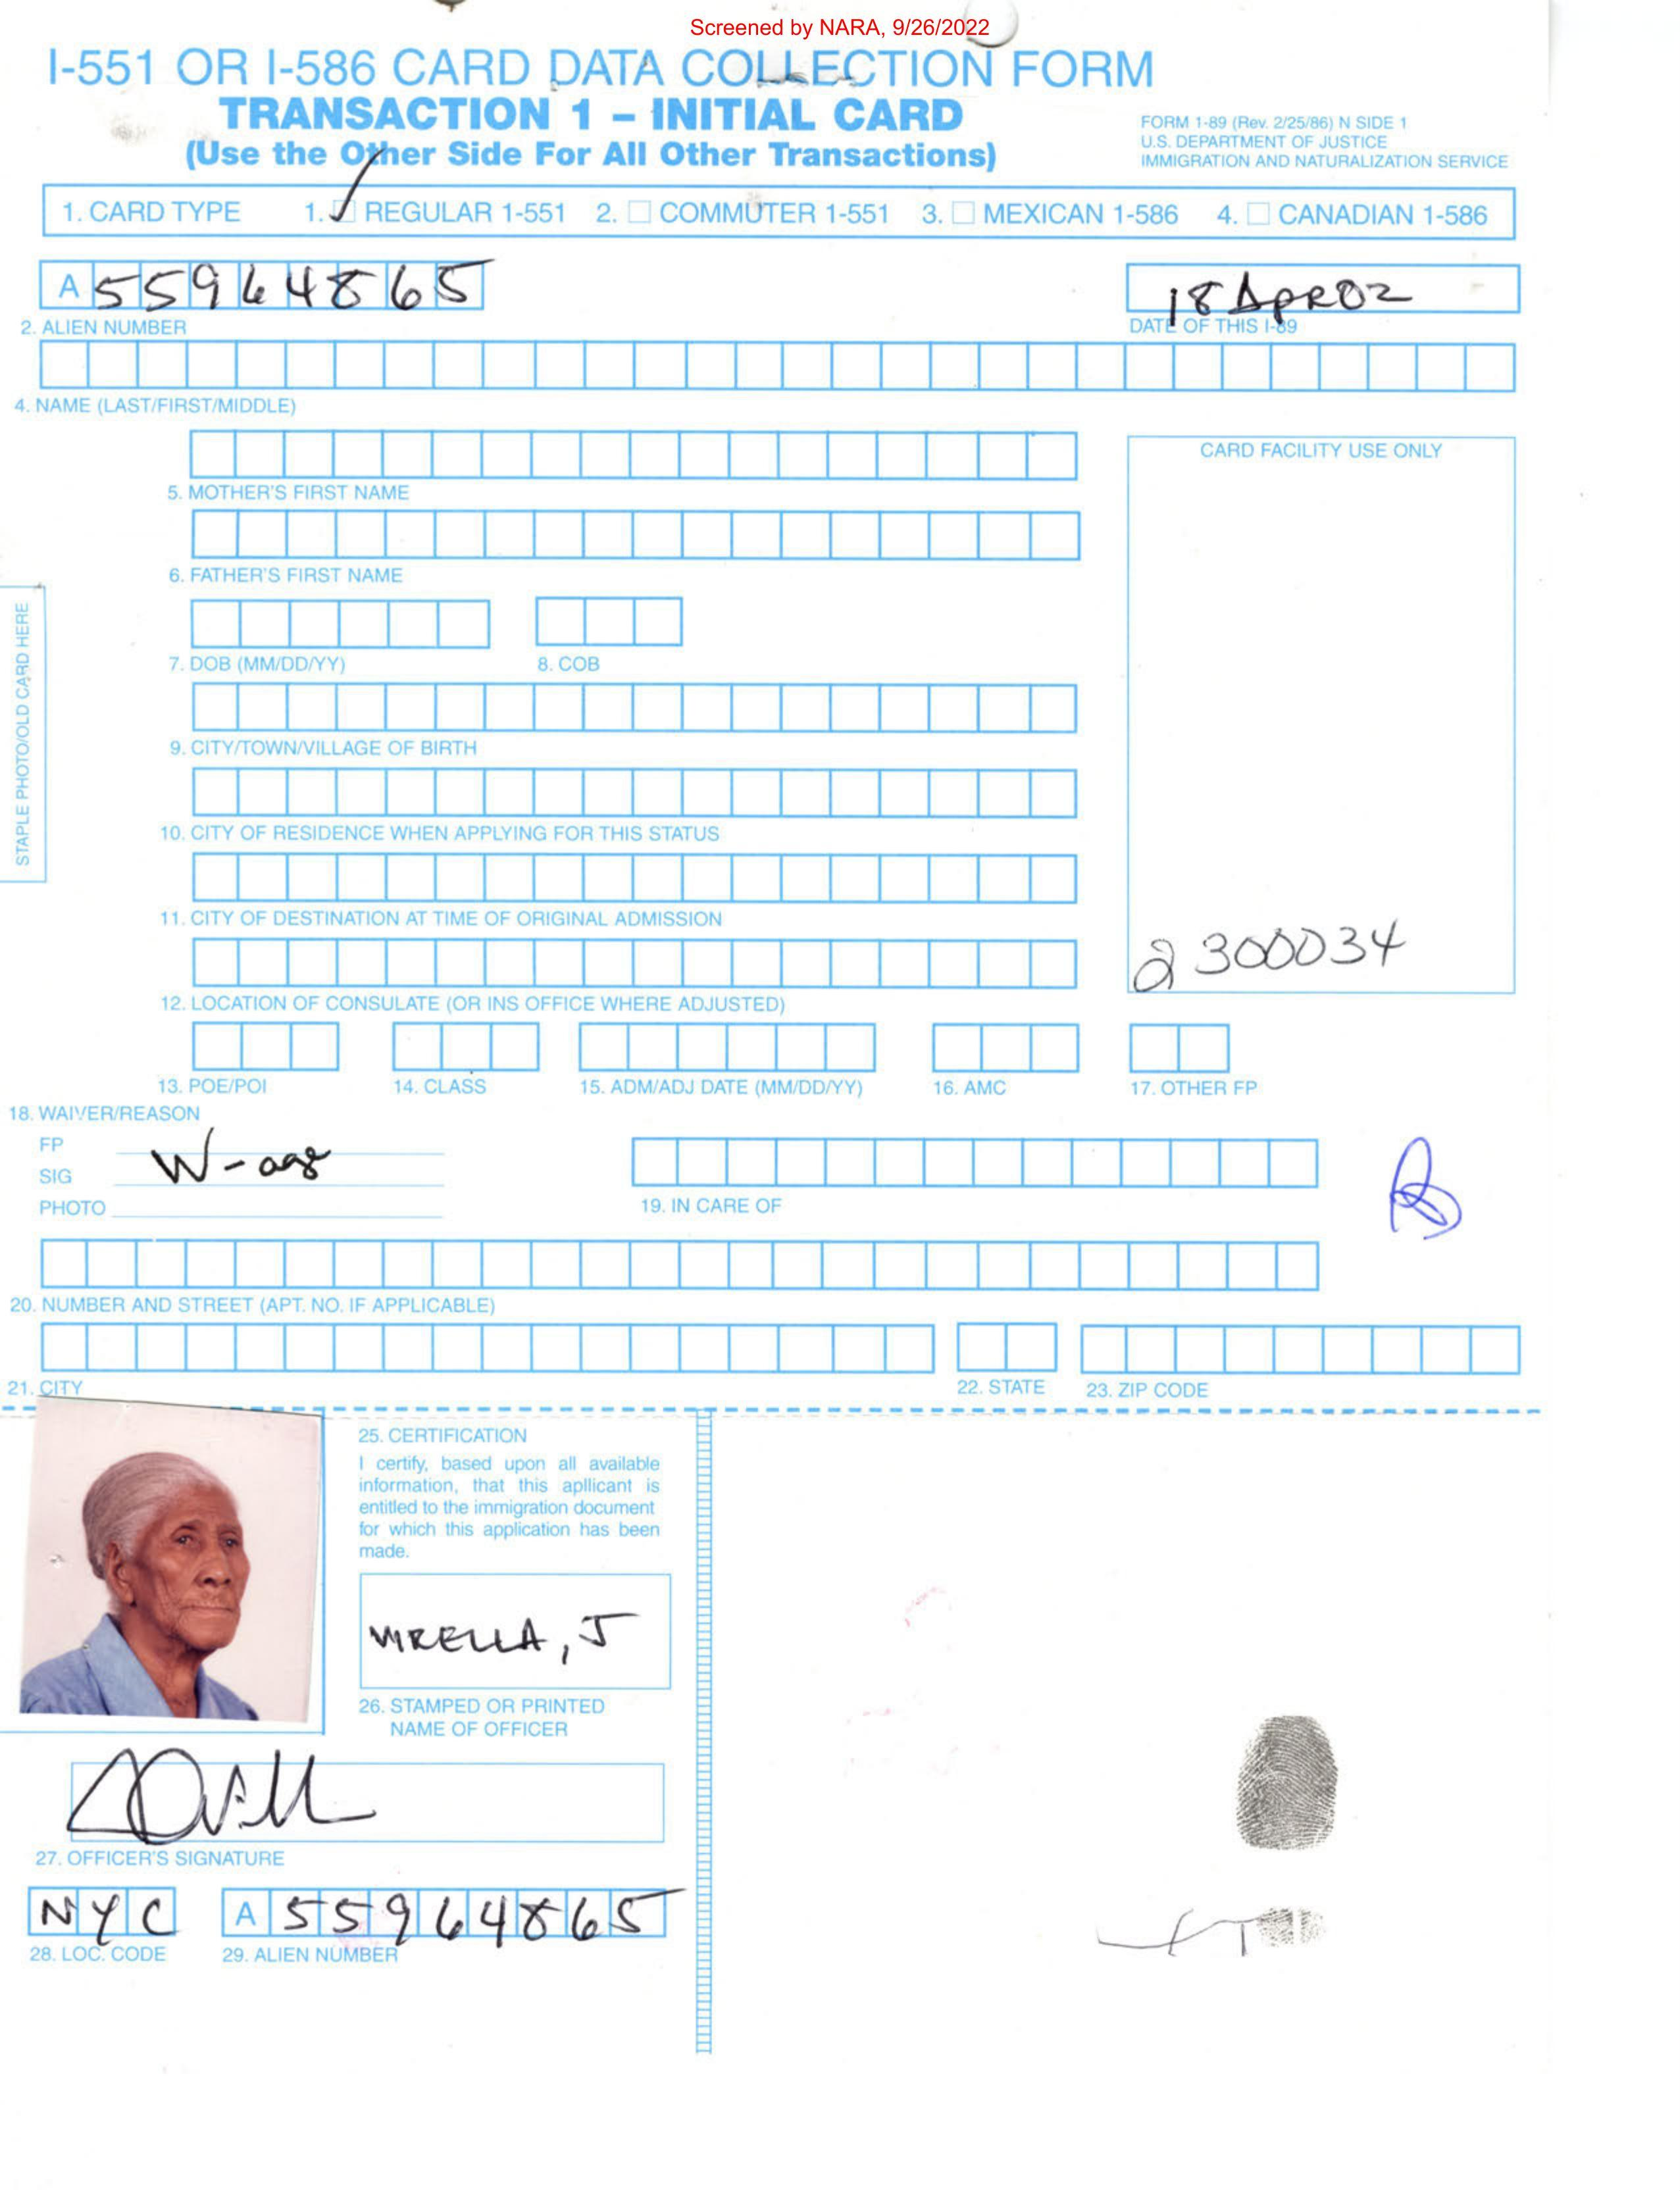 Screened by NARA, 9/26/2022
I-551 OR I-586 CARD DATA COLLECTION FORM
TRANSACTION 1 – INITIAL CARD
(Use the Other Side For All Other Transactions)
FORM 1-89 (Rev. 2/25/86) N SIDE 1
U.S. DEPARTMENT OF JUSTICE
IMMIGRATION AND NATURALIZATION SERVICE
1. CARD TYPE 1. REGULAR 1-551 2. COMMUTER 1-551 3. MEXICAN 1-586 4. CANADIAN 1-586
A 55964865
18 APR 02
2. ALIEN NUMBER
DATE OF THIS I-89
4. NAME (LAST/FIRST/MIDDLE)
CARD FACILITY USE ONLY
5. MOTHER'S FIRST NAME
6. FATHER'S FIRST NAME
STAPLE PHOTO/OLD CARD HERE
7. DOB (MM/DD/YY) 8. COB
9. CITY/TOWN/VILLAGE OF BIRTH
10. CITY OF RESIDENCE WHEN APPLYING FOR THIS STATUS
11. CITY OF DESTINATION AT TIME OF ORIGINAL ADMISSION
2300034
12. LOCATION OF CONSULATE (OR INS OFFICE WHERE ADJUSTED)
13. POE/POI 14. CLASS 15. ADM/ADJ DATE (MM/DD/YY) 16. AMC 17. OTHER FP
18. WAIVER/REASON
FP
W-age
SIG
PHOTO
19. IN CARE OF
20. NUMBER AND STREET (APT. NO. IF APPLICABLE)
21. CITY 22. STATE 23. ZIP CODE
25. CERTIFICATION
I certify, based upon all available
information, that this apllicant is
entitled to the immigration document
for which this application has been
made.
VIRELLA, J
26. STAMPED OR PRINTED
NAME OF OFFICER
27. OFFICER'S SIGNATURE
NYC A 55964865
28. LOC. CODE 29. ALIEN NUMBER